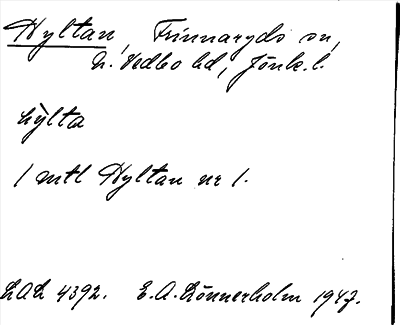 Hyltan, Frinnaryds sn,
N. Vedbo hd, Jönk. l.
hy̆lta
1 mtl Hyltan nr 1.
LAL 4392. E. A. Lönnerholm 1947.